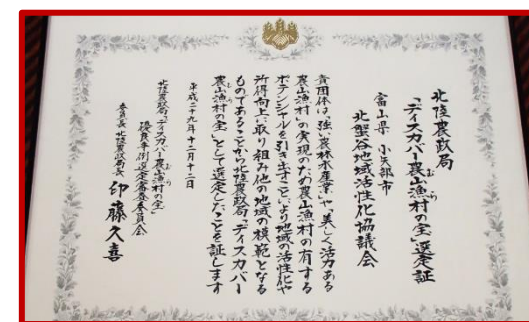 北陸農政局
「ディスカバー農山漁村の宝」選定証
むら
富山県 小矢部市
北蟹谷地域活性化協議会
貴団体は「強い農林水産業」や「美しく活力ある
農山漁村」の実現のため農山漁村の有する
ポテンシャルを引き出すことにより地域の活性化や
所得向上に取り組み他の地域の模範となる
ものであることから北陸農政局「ディスカバー
農山漁村の宝」として選定したことを証します
むら
平成二十九年十二月十二日
北陸農政局「ディスカバー農山漁村の宝」
むら
優良事例選定審査委員会
委員長 北陸農政局長 印藤久喜